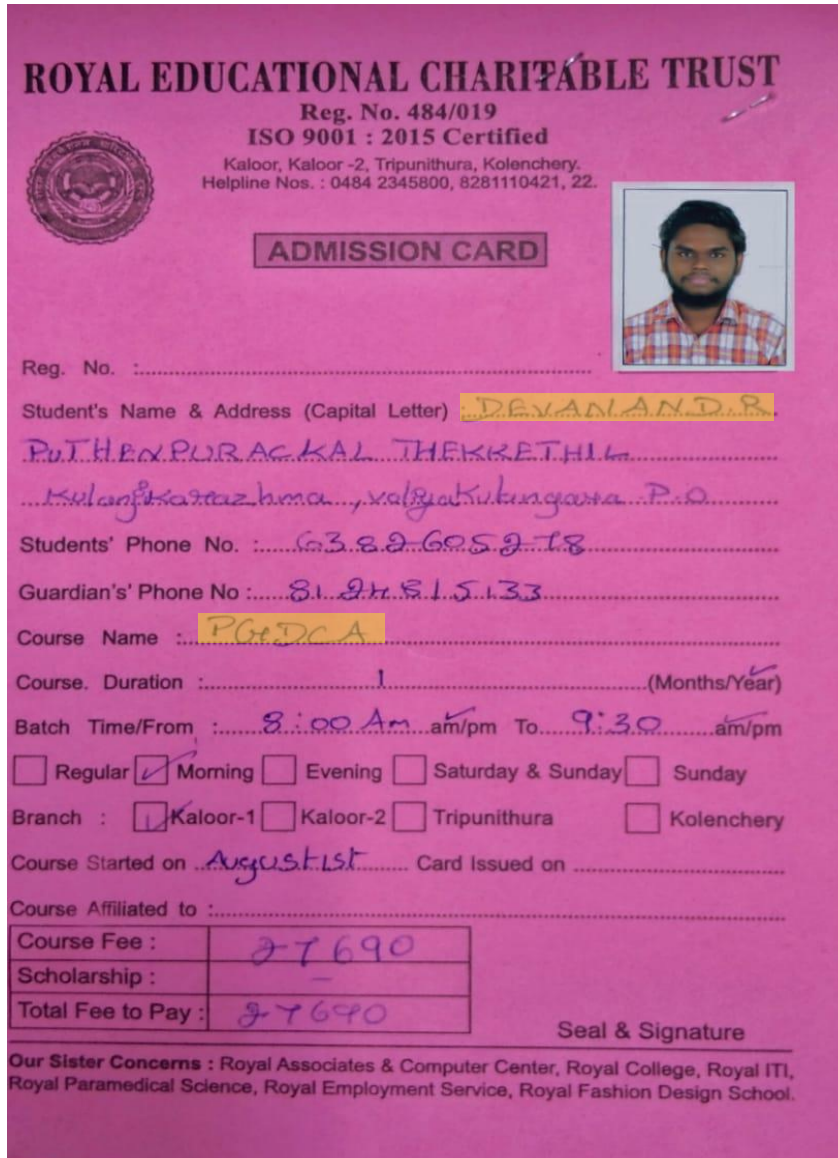 ROYAL EDUCATIONAL CHARITABLE TRUST
Reg. No. 484/019
ISO 9001 : 2015 Certified
Kaloor, Kaloor -2, Tripunithura, Kolenchery.
Helpline Nos. : 0484 2345800, 8281110421, 22.
ADMISSION CARD
Reg. No. :
Student's Name & Address (Capital Letter) : DEVANAND.R
PUTHENPURACKAL THEKKETHIL
P.O
Students' Phone No. : 6382605278
Guardian's' Phone No : 8124815133
Course Name : PGDCA
Course. Duration : 1 (Months/Year)
Batch Time/From : 8:00 Am am/pm To 9:30 am/pm
Regular Morning Evening Saturday & Sunday Sunday
Branch : Kaloor-1 Kaloor-2 Tripunithura Kolenchery
Course Started on August 1st Card Issued on
Course Affiliated to :
Course Fee : 27690
Scholarship : -
Total Fee to Pay : 27690
Seal & Signature
Our Sister Concerns : Royal Associates & Computer Center, Royal College, Royal ITI,
Royal Paramedical Science, Royal Employment Service, Royal Fashion Design School.